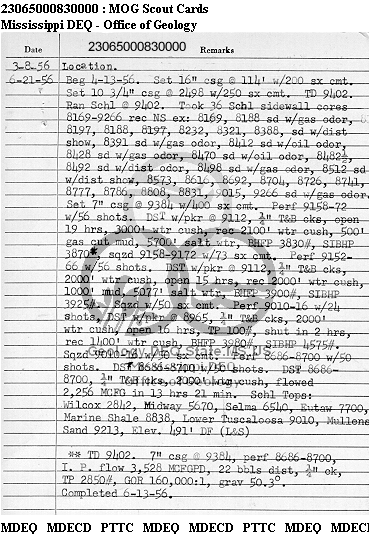 23065000830000 : MOG Scout Cards
Mississippi DEQ - Office of Geology
Date 23065000830000 Remarks
3-8-56 Location.
6-21-56 Beg 4-13-56. Set 16" csg @ 114' w/200 sx cmt.
Set 10 3/4" csg @ 2498 w/250 sx cmt. TD 9402.
Ran Schl @ 9402. Took 36 Schl sidewall cores
8169-9266 rec NS ex: 8169, 8188 sd w/gas odor,
8197, 8188, 8197, 8232, 8321, 8388, sd w/dist
show, 8391 sd w/gas odor, 8412 sd w/oil odor,
8428 sd w/gas odor, 8470 sd w/oil odor, 8482½,
8492 sd w/dist odor, 8498 sd w/gas odor, 8512 sd
w/dist show, 8573, 8616, 8692, 8704, 8726, 8741,
8777, 8786, 8808, 8831, 9015, 9266 sd w/gas odor.
Set 7" csg @ 9384 w/400 sx cmt. Perf 9158-72
w/56 shots. DST w/pkr @ 9112, ¼" T&B cks, open
19 hrs, 3000' wtr cush, rec 2100' wtr cush, 500'
gas cut mud, 5700' salt wtr, BHFP 3830#, SIBHP
3870#, sqzd 9158-9172 w/73 sx cmt. Perf 9152-
66 w/56 shots. DST w/pkr @ 9112, ¼" T&B cks,
2000' wtr cush, open 15 hrs, rec 2000' wtr cush,
1000' mud, 5077' salt wtr, BHFP 3900#, SIBHP
3925#. Sqzd w/50 sx cmt. Perf 9010-16 w/24
shots. DST w/pkr @ 8965, ¼" T&B cks, 2000'
wtr cush, open 16 hrs, TP 100#, shut in 2 hrs,
rec 1400' wtr cush, BHFP 3980#, SIBHP 4575#.
Sqzd 9010-16 w/40 sx cmt. Perf 8686-8700 w/50
shots. DST 8686-8700 w/50 shots. DST 8686-
8700, ¼" T&B cks, 2000' wtr cush, flowed
2,256 MCFG in 13 hrs 21 min. Schl Tops:
Wilcox 2842, Midway 5670, Selma 6540, Eutaw 7700,
Marine Shale 8838, Lower Tuscaloosa 9010, Mullens
Sand 9213, Elev. 491' DF (L&S)
** TD 9402. 7" csg @ 9384, perf 8686-8700,
I. P. flow 3,528 MCFGPD, 22 bbls dist, ¼" ck,
TP 2850#, GOR 160,000:1, grav 50.3°.
Completed 6-13-56.
MDEQ MDECD PTTC MDEQ MDECD PTTC MDEQ MDECD